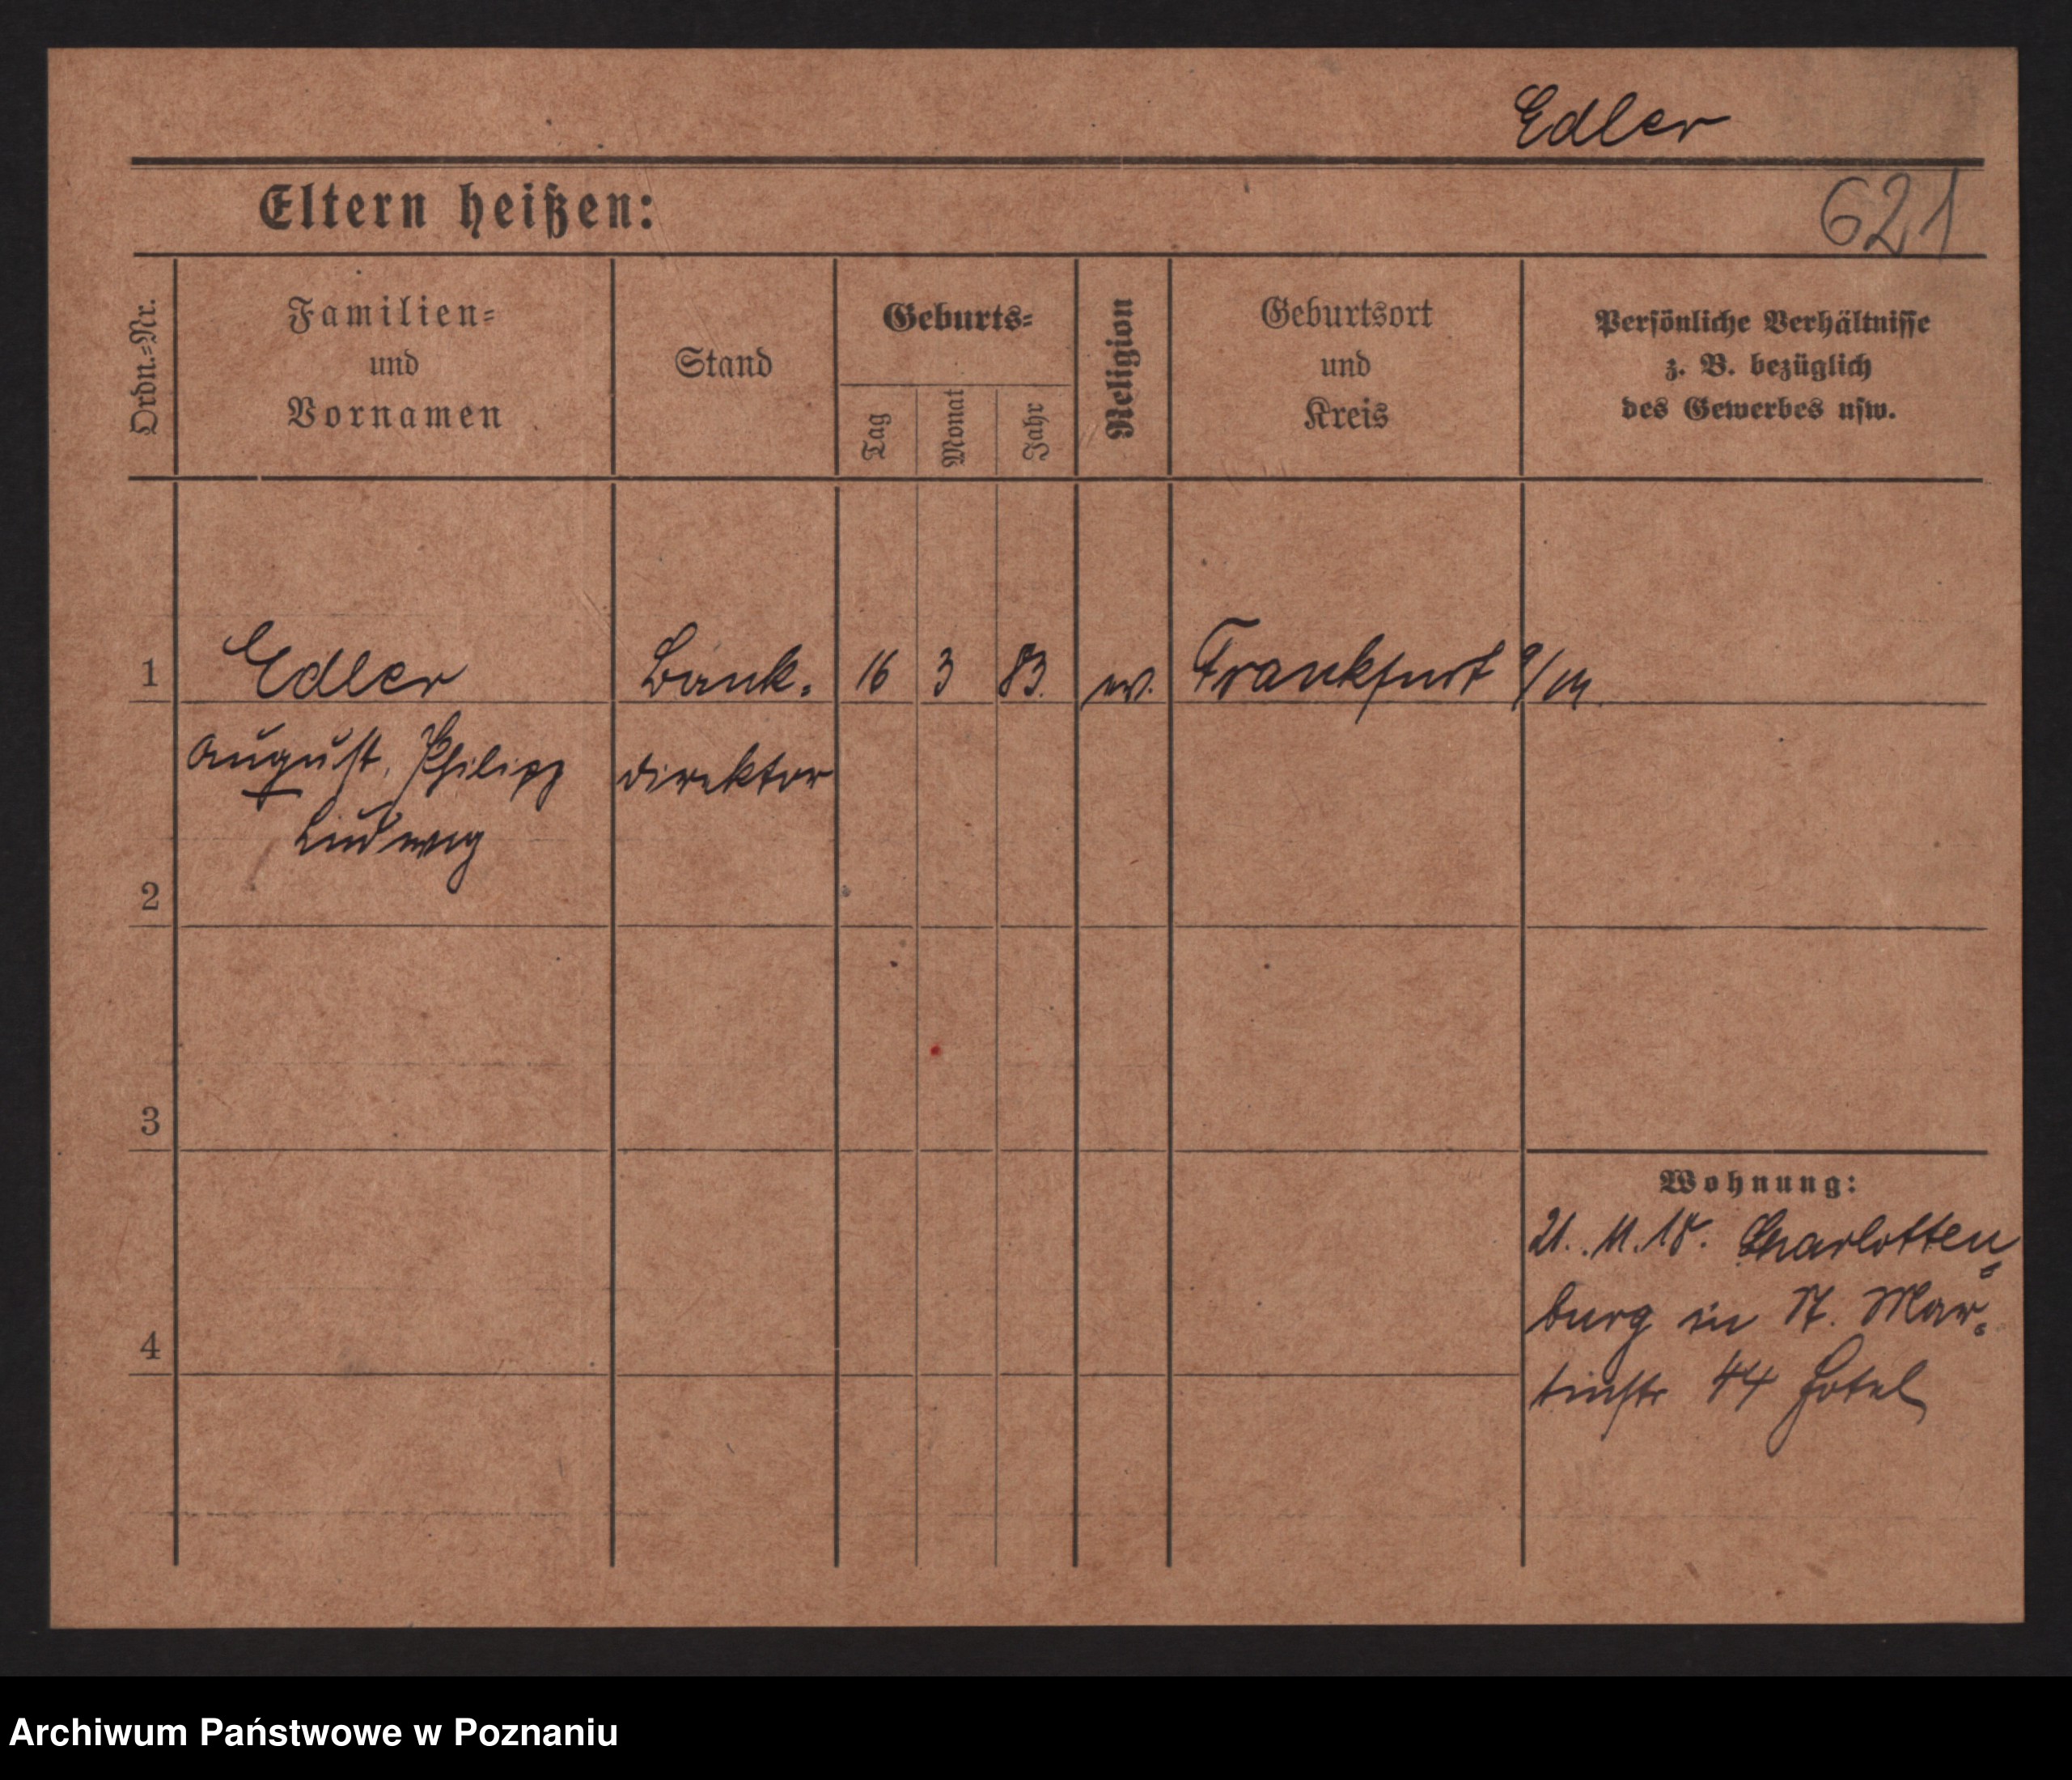 Edler
Eltern heißen:
621
Ordn.=Nr.
Familien=
und
Vornamen
Stand
Geburts=
Tag
Monat
Jahr
Religion
Geburtsort
und
Kreis
Persönliche Verhältnisse
z. B. bezüglich
des Gewerbes usw.
1 Edler Bank- 16 3 83. ev. Frankfurt a/M.
August, Philipp direktor
Ludwig
2
3
Wohnung:
21. 11. 18. Charlotten=
burg in St. Mar-
4
tinstr 44 Hotel
Archiwum Państwowe w Poznaniu